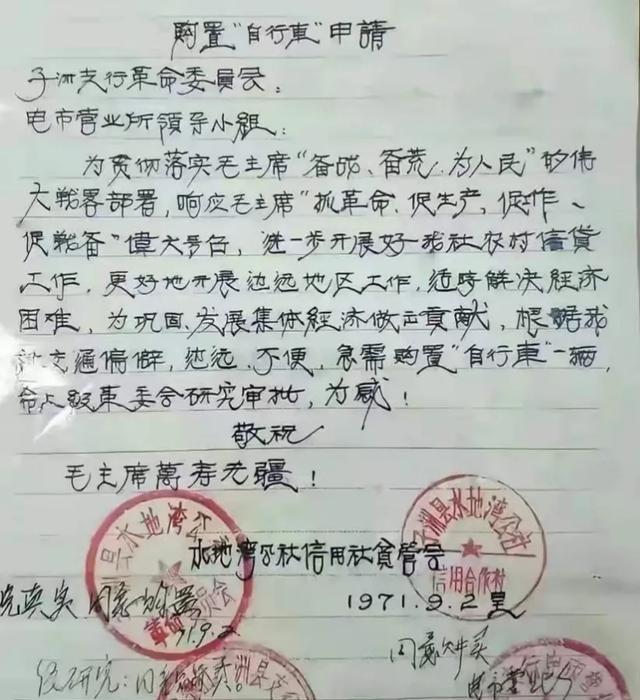 购置"自行車"申請
子洲支行革命委員会:
电市营业所領导小組:
为贯彻落实毛主席"备战、备荒、为人民"的伟
大戦畧部署,响应毛主席"抓革命、促生产,促工作、
促戦备"偉大号召,進一步开展好我社农村信貸
工作,更好地开展边远地区工作,适時解决經济
困难,为巩固、发展集体經济做出貢献,根据我
社交通偏僻,边远、不便,急需购置"自行車"一辆,
希上级革委会研究审批,为感!
敬祝
毛主席萬寿无疆!
子洲县水地湾公社
信用合作
县水地湾公
革命 員会
水地湾公社信用社貧管会
真实 同意购置
71.9.2
1971.9.2呈
同意
经研究:同意
洲县